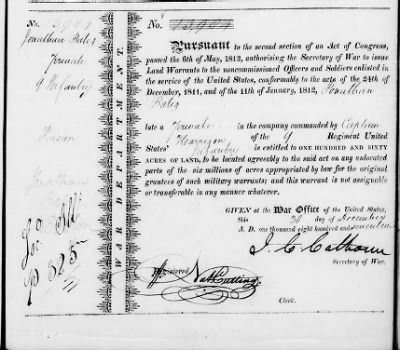 No.
Jonathan Bates
Private
9 Infantry
WAR DEPARTMENT.
No
Pursuant to the second section of an Act of Congress,
passed the 6th of May, 1812, authorising the Secretary of War to issue
Land Warrants to the noncommissioned Officers and Soldiers enlisted in
the service of the United States, conformably to the acts of the 24th of
December, 1811, and of the 11th of January, 1812, Jonathan
Bates
late a Private in the company commanded by Captain
of the 9 Regiment United
States' Infantry is entitled to ONE HUNDRED AND SIXTY
ACRES OF LAND, to be located agreeably to the said act on any unlocated
parts of the six millions of acres appropriated by law for the original
grantees of such military warrants; and this warrant is not assignable
or transferable in any manner whatever.
GIVEN at the War Office of the United States,
this 26 day of December
A. D. one thousand eight hundred and seventeen
J. C. Calhoun
Secretary of War.
Registered
Nat Cutting
Clerk.